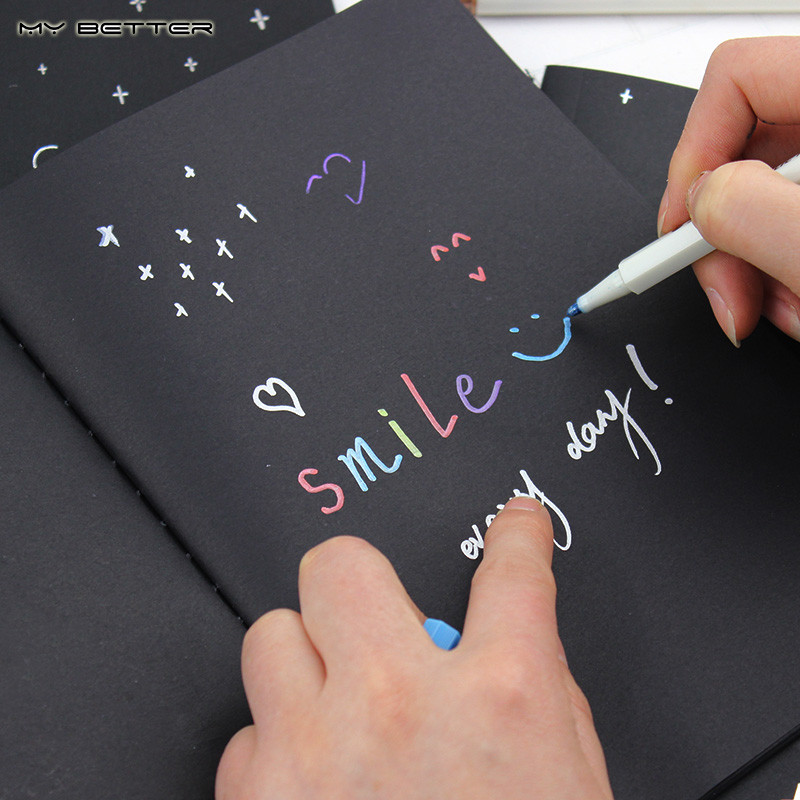 MY BETTER
smile
every day!